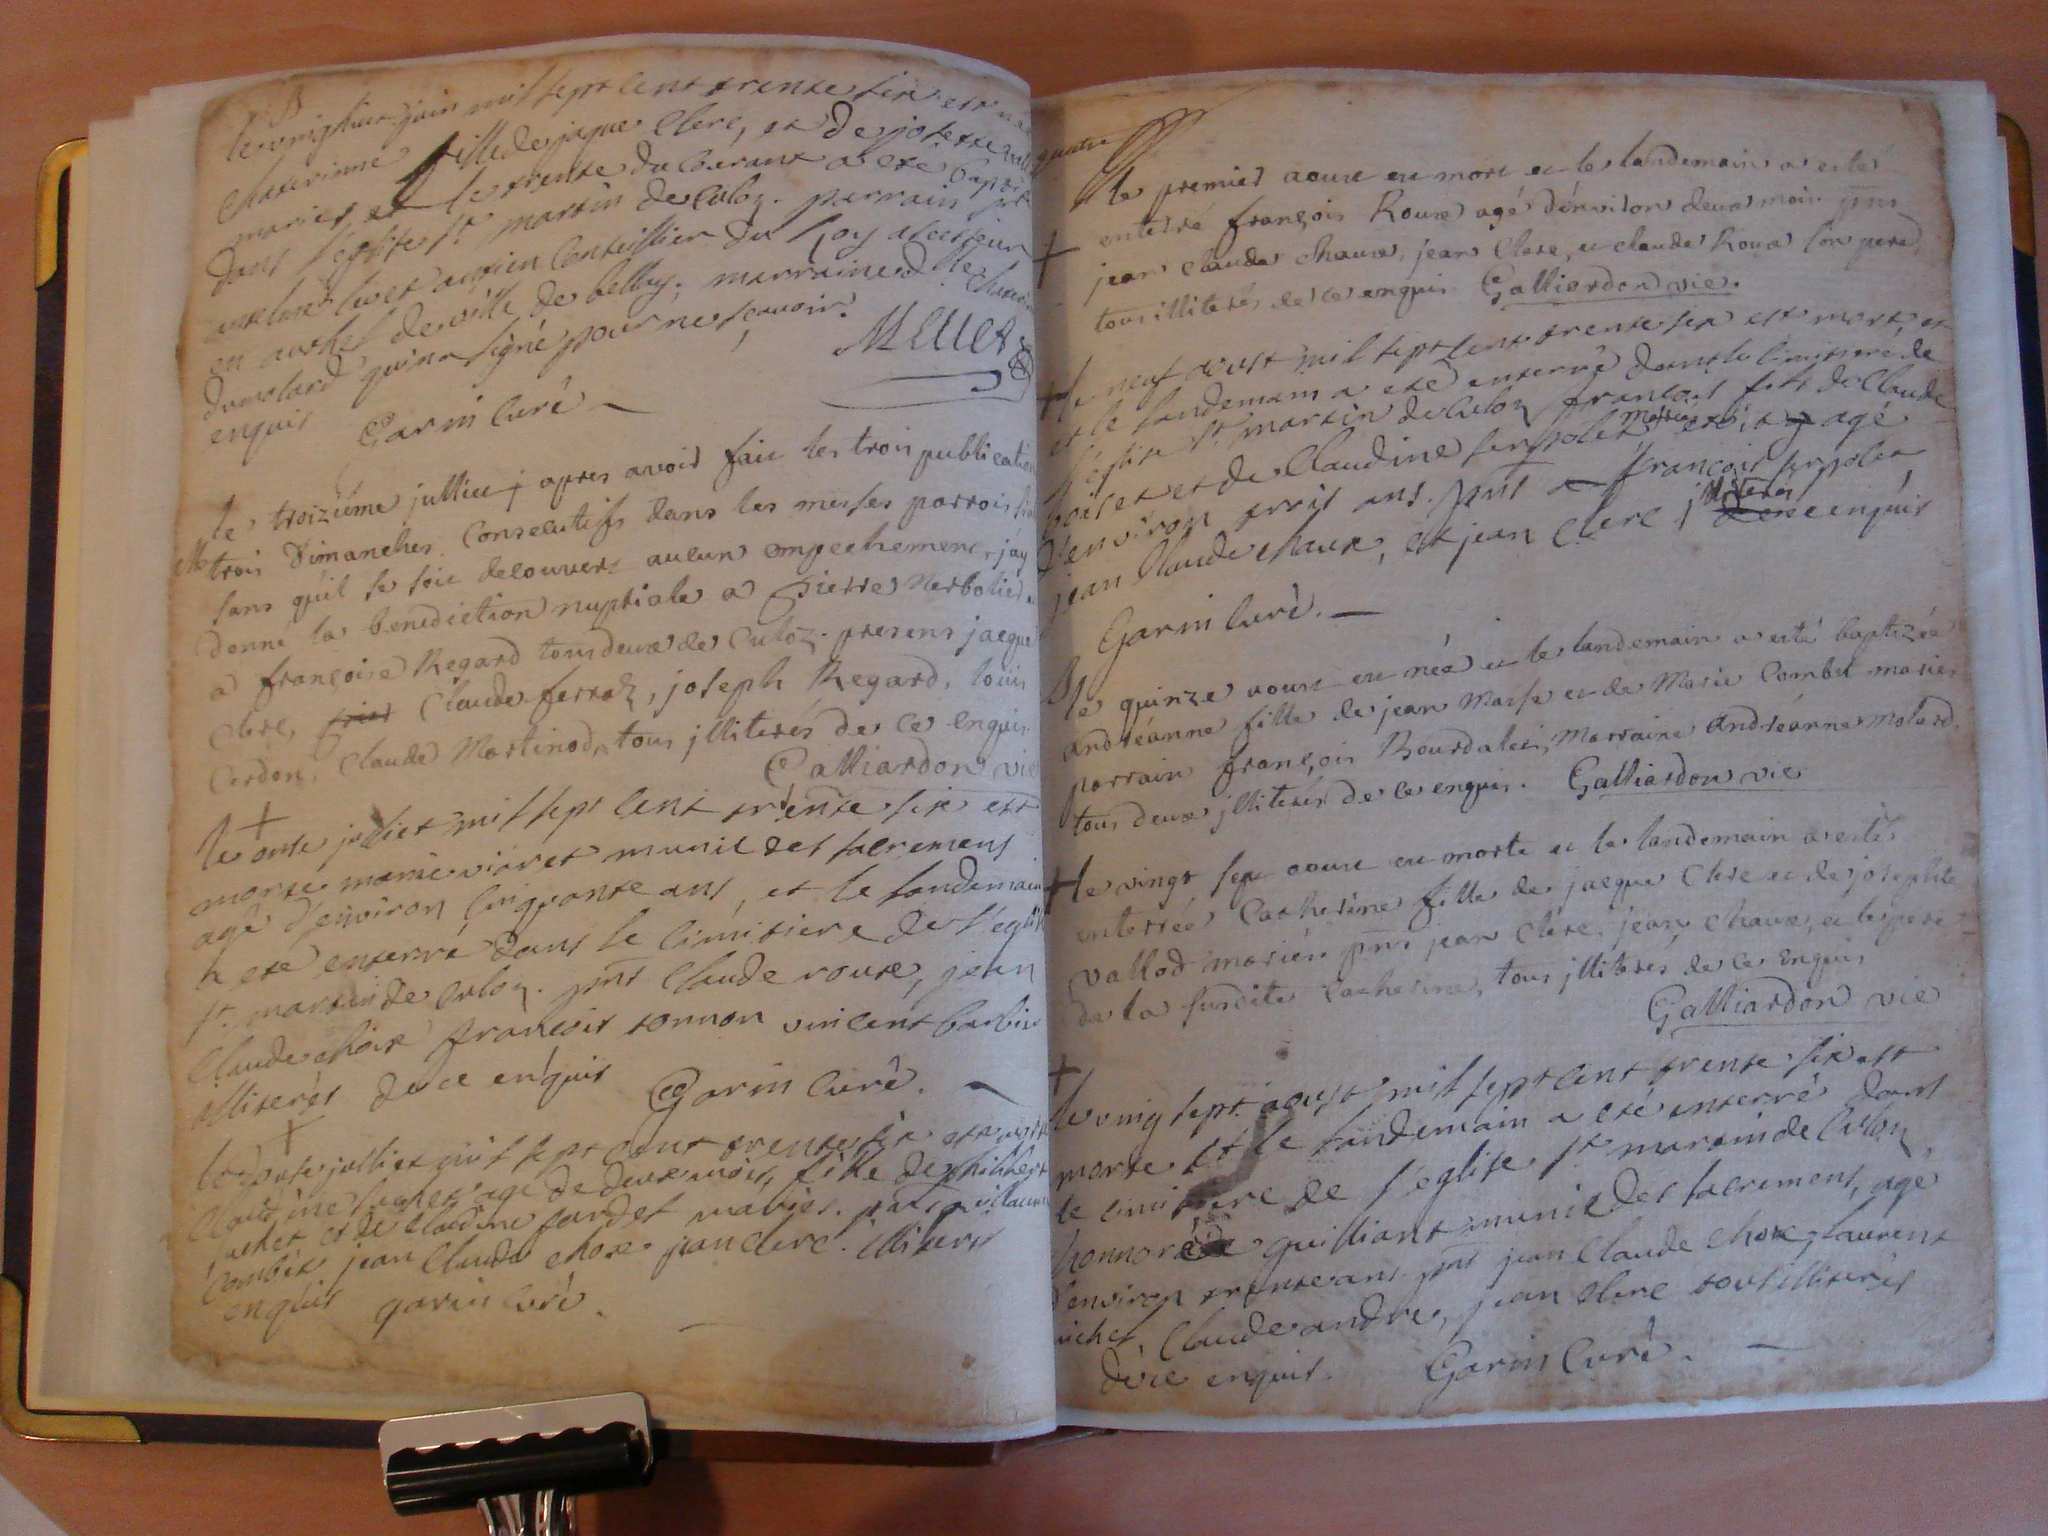 B
le ving huit juin mil sept cent trente six est née
Chaterinne fille de jaque Clerc, et de josette
mariés et le trente du courant a eté baptisé
dans l'eglise st martin de Culoz. parrain sr
anselme ancien Conseillier du Roy
en de ville de bellay, marraine dlle
dumolard qui n'a signé pour ne scavoir.
enquis Garin Curé
le troiziéme julliet apres avoir fait les trois publications
trois Dimanches Consecutifs dans les messes parrois
sans qu'il se soit decouvert aucun empechement j'ay
donné la benediction nuptiale a Pierre Nerbolier
a françoise Regard tous deux de Culoz. presens jacque
Clerc, Claude ferroz, joseph Regard, louis
Cerdon, Claude Martinod, tous jlliterés de ce Enquis
Galliardon vic
+
le onse julliet mil sept cent trente six est
morte marie viovet munie des sacremens
agé d'environ cinquante ans, et le landemain
a eté enterré dans le cimitiere de l'eglise
st. martin de Culoz. pnts Claude roux, jean
Claude choix françois tonnon vincent barbin
illiterés de ce enquis Garin Curé.
+
le douse julliet mil sept cent trente six est morte
Claudine suchet agé de deux mois, fille de philibert
suchet et de Claudine fardet mariés. pnts guillaume
Combet jean Claude choix jean clerc. illiterés
enquis garin curé.
quatre
le premier aoust est mort et le landemain a esté
enterré françois Roux agé d'environ deux mois pnts
+ jean claude chaux, jean Clerc, et claude Roux son pere
tous illiterés de ce enquis Galliardon vic.
+ le neuf aoust mil sept cent trente six est mort, et
et le landemain a eté enterré dans le cimitiere de
l'eglise st. martin de Culoz françois fils de Claude
boilet et de Claudine serpolet mariés agé
d'environ trois ans. pnts françois serpolet
jean Claude chaux, et jean Clerc jlliterés de ce enquis
Garin Curé.
B le quinze aoust est née et le landemain a esté baptizée
andréanne fille de jean Masse et de Marie Combet mariés
parrain françois Bourdalet, Marraine Andréanne Molard.
tous deux jlliterés de ce enquis. Galliardon vic
+ le vingt sept aoust est morte et le landemain a esté
enterrée Catherine fille de jacque Clerc et de josephte
Vallod mariés pnts jean Clerc, jean Chaux, et le pere
de la susdite Catherine, tous jlliterés de ce Enquis
Galliardon vic
+
le ving sept aoust mil sept cent trente six est
morte et le landemain a eté enterré dans
le cimitiere de l'eglise st. martin de Culoz
honnorade guilliant munie des sacrements, agé
d'environ trente ans pnts jean Claude choix, laurent
michel, Claude andre, jean Clerc tous illiterés
de ce enquis. Garin Curé.